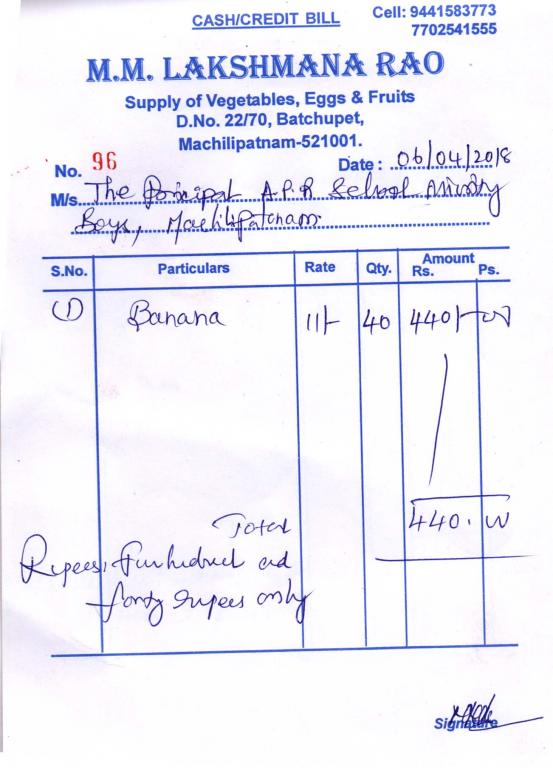 CASH/CREDIT BILL
Cell: 9441583773
7702541555
M.M. LAKSHMANA RAO
Supply of Vegetables, Eggs & Fruits
D.No. 22/70, Batchupet,
Machilipatnam-521001.
No. 96 Date : 06/04/2018
M/s. The Principal A.P.R School
Boys, Machilipatnam
S.No. Particulars Rate Qty. Amount Rs. Ps.
(1) Banana 11/- 40 440/-
Total 440.
Rupees, four hundred and
forty rupees only
Signature